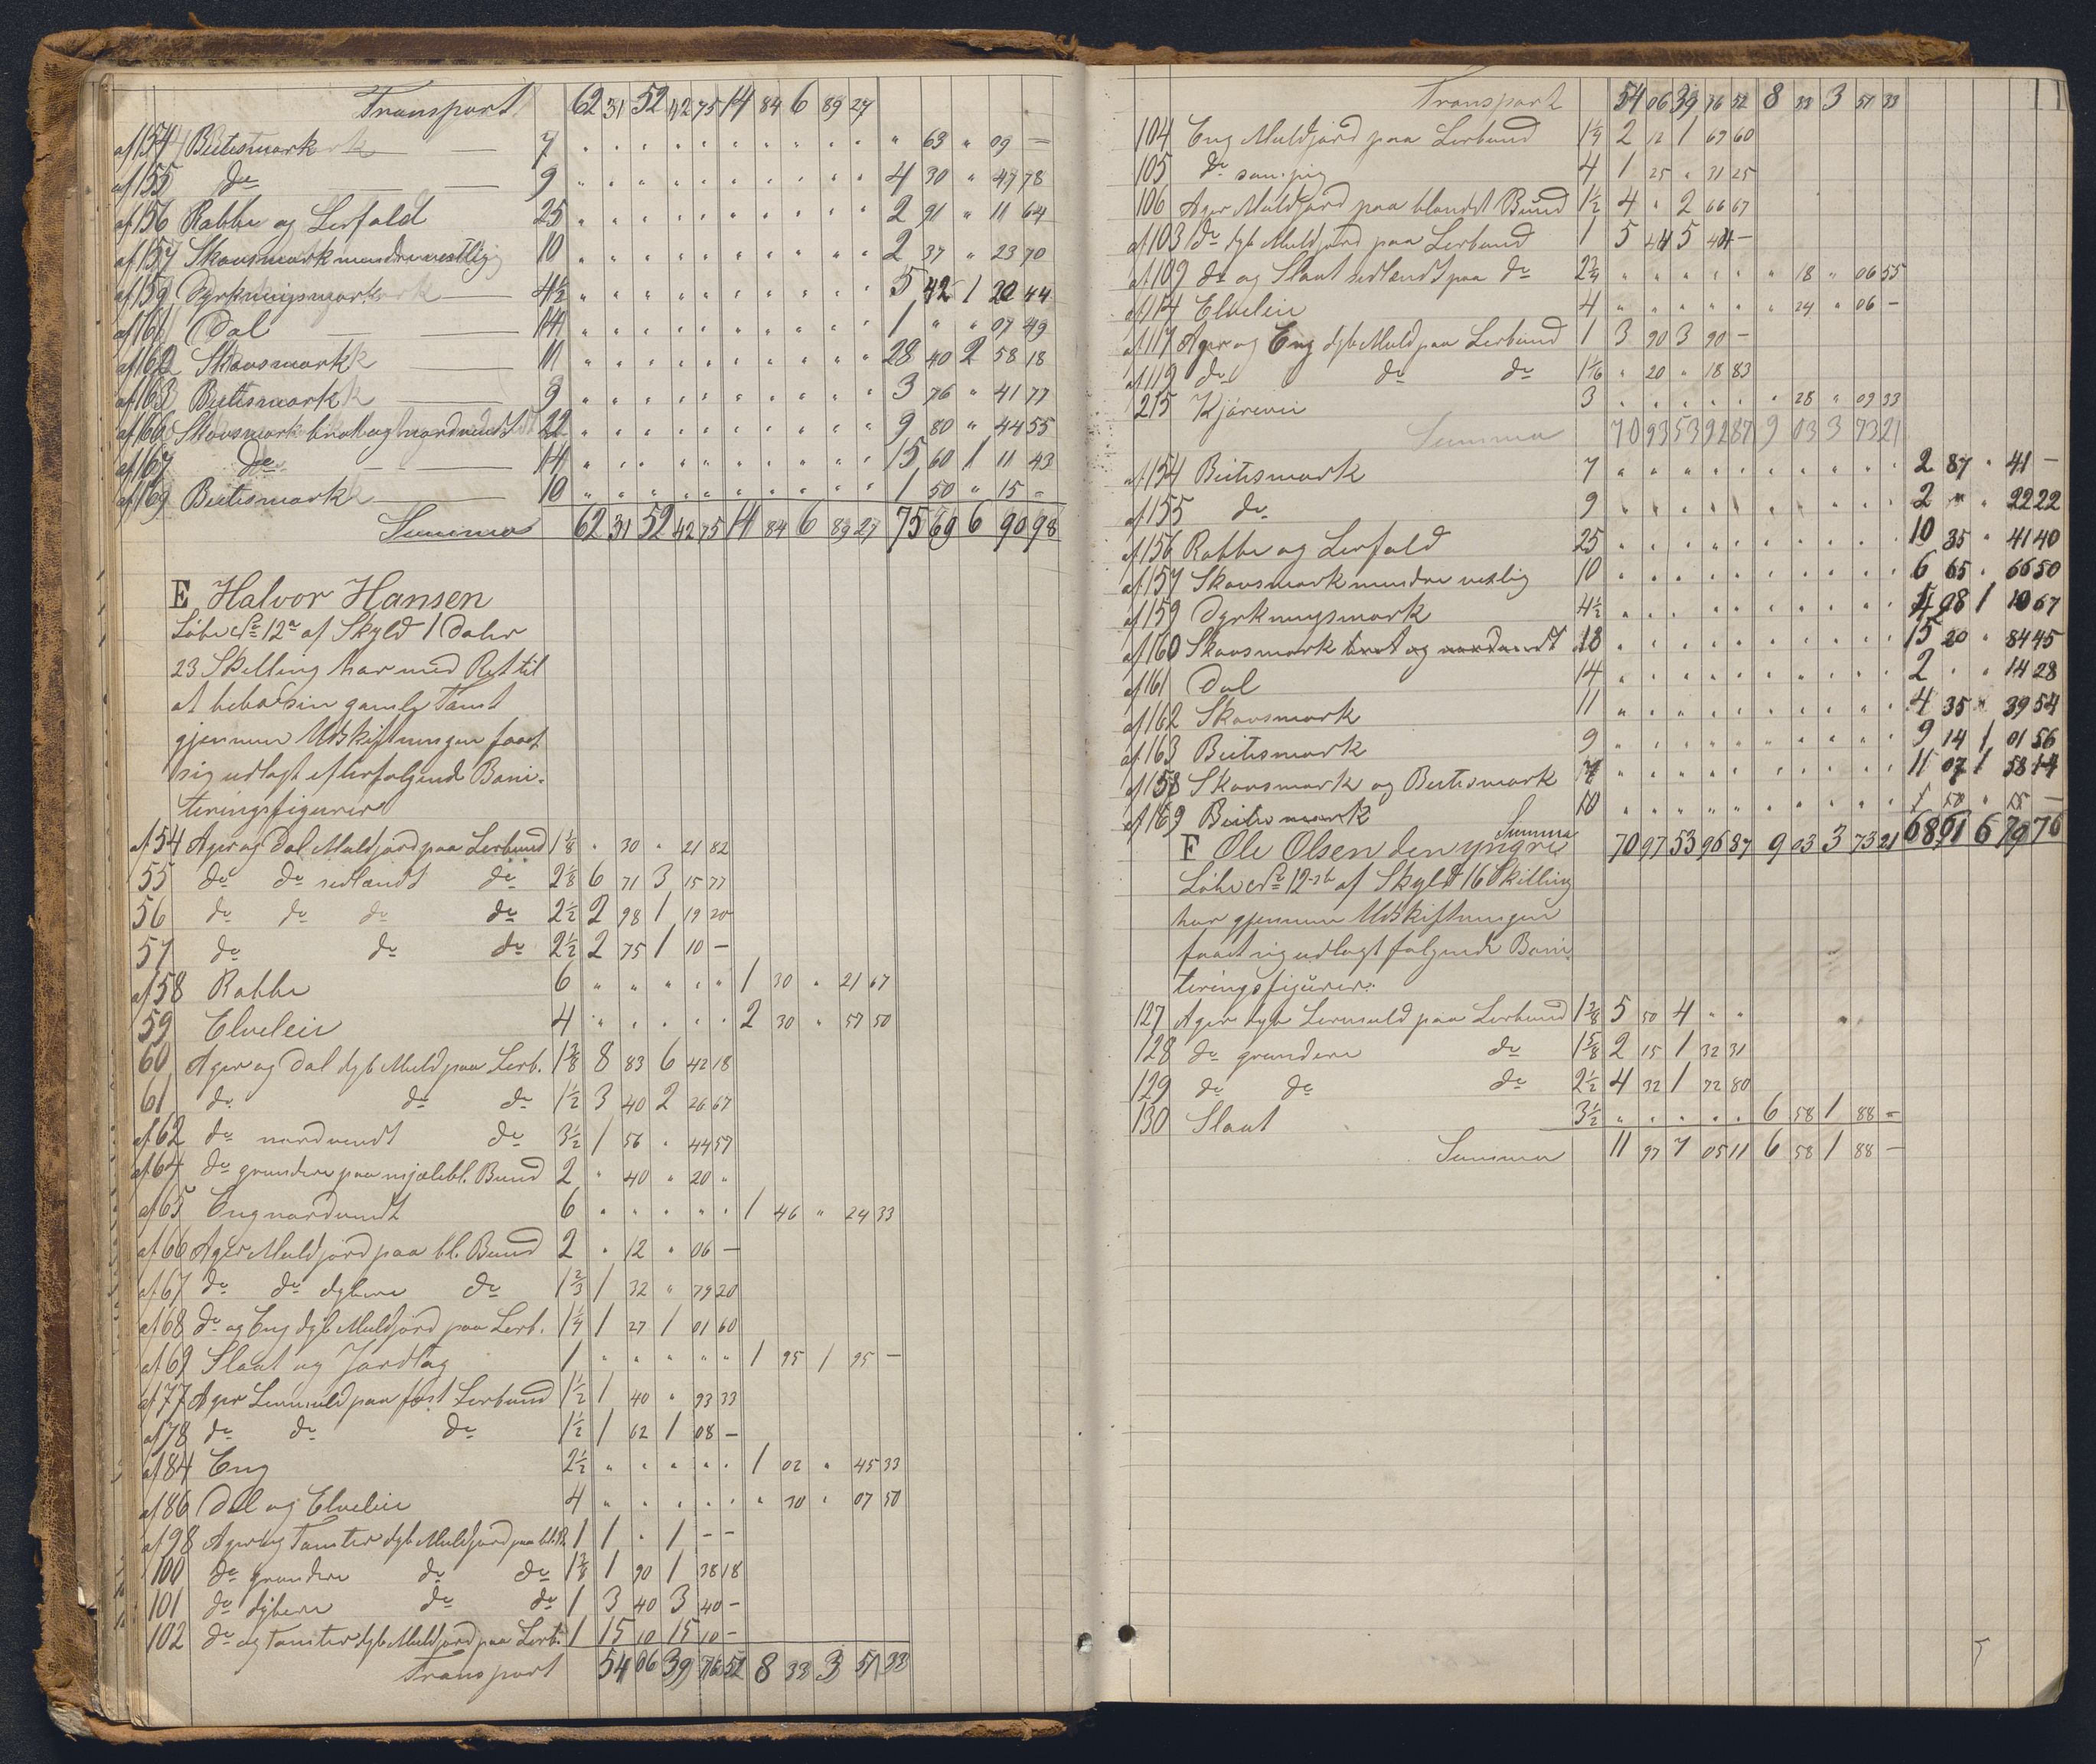 Transport 62 31 52 42 75 14 84 6 89 27
af 154 Beitesmark — 7 " " " " " " " " " " " 63 " 09 —
af 155 do — 9 " " " " " " " " " " 4 30 " 47 78
af 156 Rabbe og Lerfald 25 " " " " " " " " " " 2 91 " 11 64
af 157 Skovsmark mindre vestlig 10 " " " " " " " " " " 2 37 " 23 70
af 159 Dyrkningsmark — 4½ " " " " " " " " " " 5 42 1 20 44
af 161 Dal — 14 " " " " " " " " " " 1 " " 07 49
af 162 Skovsmark — 11 " " " " " " " " " " 28 40 2 58 18
af 163 Beitesmark — 9 " " " " " " " " " " 3 76 " 41 77
af 166 Skovsmark brat og nordvendt 22 " " " " " " " " " " 9 80 " 44 55
af 167 do — 14 " " " " " " " " " " 15 60 1 11 43
af 169 Beitesmark — 10 " " " " " " " " " " 1 50 " 15 "
Summa 62 31 52 42 75 14 84 6 89 27 75 69 6 90 98
E Halvor Hansen
Løbe No 12a af Skyld 1 Daler
23 Skilling har med Ret til
at beboe sin gamle Tomt
gjennem Udskiftningen faaet
sig udlagt efterfølgende Boni-
teringsfigurer
af 54 Ager og Dal Muldjord paa Lerbund 1⅜ " 30 " 21 82
55 do do sidlændt do 2⅛ 6 71 3 15 77
56 do do do do 2½ 2 98 1 19 20
57 do do do 2½ 2 75 1 10 —
af 58 Rabbe 6 " " " " " 1 30 " 21 67
59 Elveleie 4 " " " " " 2 30 " 57 50
60 Ager og Dal dyb Muld paa Lerb. 1⅜ 8 83 6 42 18
61 do do do 1½ 3 40 2 26 67
af 62 do nordvendt do 3½ 1 56 " 44 57
af 64 do grundere paa mjælebl. Bund 2 " 40 " 20 "
af 65 Eng nordvendt 6 " " " " " 1 46 " 24 33
af 66 Ager Muldjord paa bl. Bund 2 " 12 " 06 —
af 67 do do dybere do 1⅔ 1 32 " 79 20
af 68 do og Eng dyb Muldjord paa Lerb. 1¼ 1 27 1 01 60
af 69 Slaat og Jordtag 1 " " " " " 1 95 1 95 —
af 77 Ager Lermuld paa fast Lerbund 1½ 1 40 " 93 33
af 78 do do do 1½ 1 62 1 08 —
af 84 Eng 2½ " " " " " 1 02 " 45 33
af 86 Dal og Elveleie 4 " " " " " " 30 " 07 50
af 98 Ager og Tomter dyb Muldjord paa bl. B. 1 1 " 1 — —
100 do grundere do do 1⅜ 1 90 1 38 18
101 do dybere do do 1 3 40 3 40 —
102 do og Tomter dyb Muldjord paa Lerb. 1 15 10 15 10 —
Transport 54 06 39 76 52 8 33 3 51 33
Transport 54 06 39 76 52 8 33 3 51 33
104 Eng Muldjord paa Lerbund 1¼ 2 12 1 69 60
105 do 4 1 25 " 31 25
106 Ager Muldjord paa blandet Bund 1½ 4 " 2 66 67
af 103 do dyb Muldjord paa Lerbund 1 5 44 5 44 —
af 109 do og Slaat sidlændt paa do 2¾ " " " " " " 18 " 06 55
af 114 Elveleie 4 " " " " " " 24 " 06 —
af 117 Ager og Eng dyb Muld paa Lerbund 1 3 90 3 90 —
af 119 do do do 1 1/16 " 20 " 18 83
215 Kjørevei 3 " " " " " " 28 " 09 33
Summa 70 93 53 92 87 9 03 3 73 21
af 154 Beitesmark 7 " " " " " " " " " " 2 87 " 41 —
af 155 do 9 " " " " " " " " " " 2 " " 22 22
af 156 Rabbe og Lerfald 25 " " " " " " " " " " 10 35 " 41 40
af 157 Skovsmark mindre vestlig 10 " " " " " " " " " " 6 65 " 66 50
af 159 Dyrkningsmark 4½ " " " " " " " " " " 4 98 1 10 67
af 160 Skovsmark brat og nordvendt 18 " " " " " " " " " " 15 20 " 84 45
af 161 Dal 14 " " " " " " " " " " 2 " " 14 28
af 162 Skovsmark 11 " " " " " " " " " " 4 35 " 39 54
af 163 Beitesmark 9 " " " " " " " " " " 9 14 1 01 56
af 158 Skovsmark og Beitesmark 7 " " " " " " " " " " 11 07 1 58 14
af 169 Beitesmark 10 " " " " " " " " " " 1 50 " 15 —
Summa 70 97 53 96 87 9 03 3 73 21 68 61 6 79 76
F Ole Olsen den yngre
Løbe No 12 b af Skyld 16 Skilling
har gjennem Udskiftningen
faaet sig udlagt følgende Boni-
teringsfigurer:
127 Ager dyb Lermuld paa Lerbund 1⅜ 5 50 4 " "
128 do grundere do 1⅝ 2 15 1 32 31
129 do do do 2½ 4 32 1 72 80
130 Slaat 3½ " " " " " 6 58 1 88 "
Summa 11 97 7 05 11 6 58 1 88 —